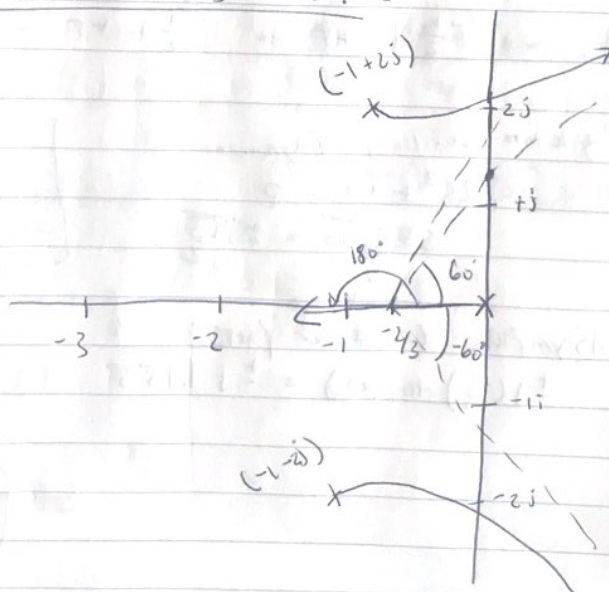 (-1+2j)
2j
+j
180°
60°
-3
-2
-1
-2/3
-60°
-1j
(-1-2j)
-2j